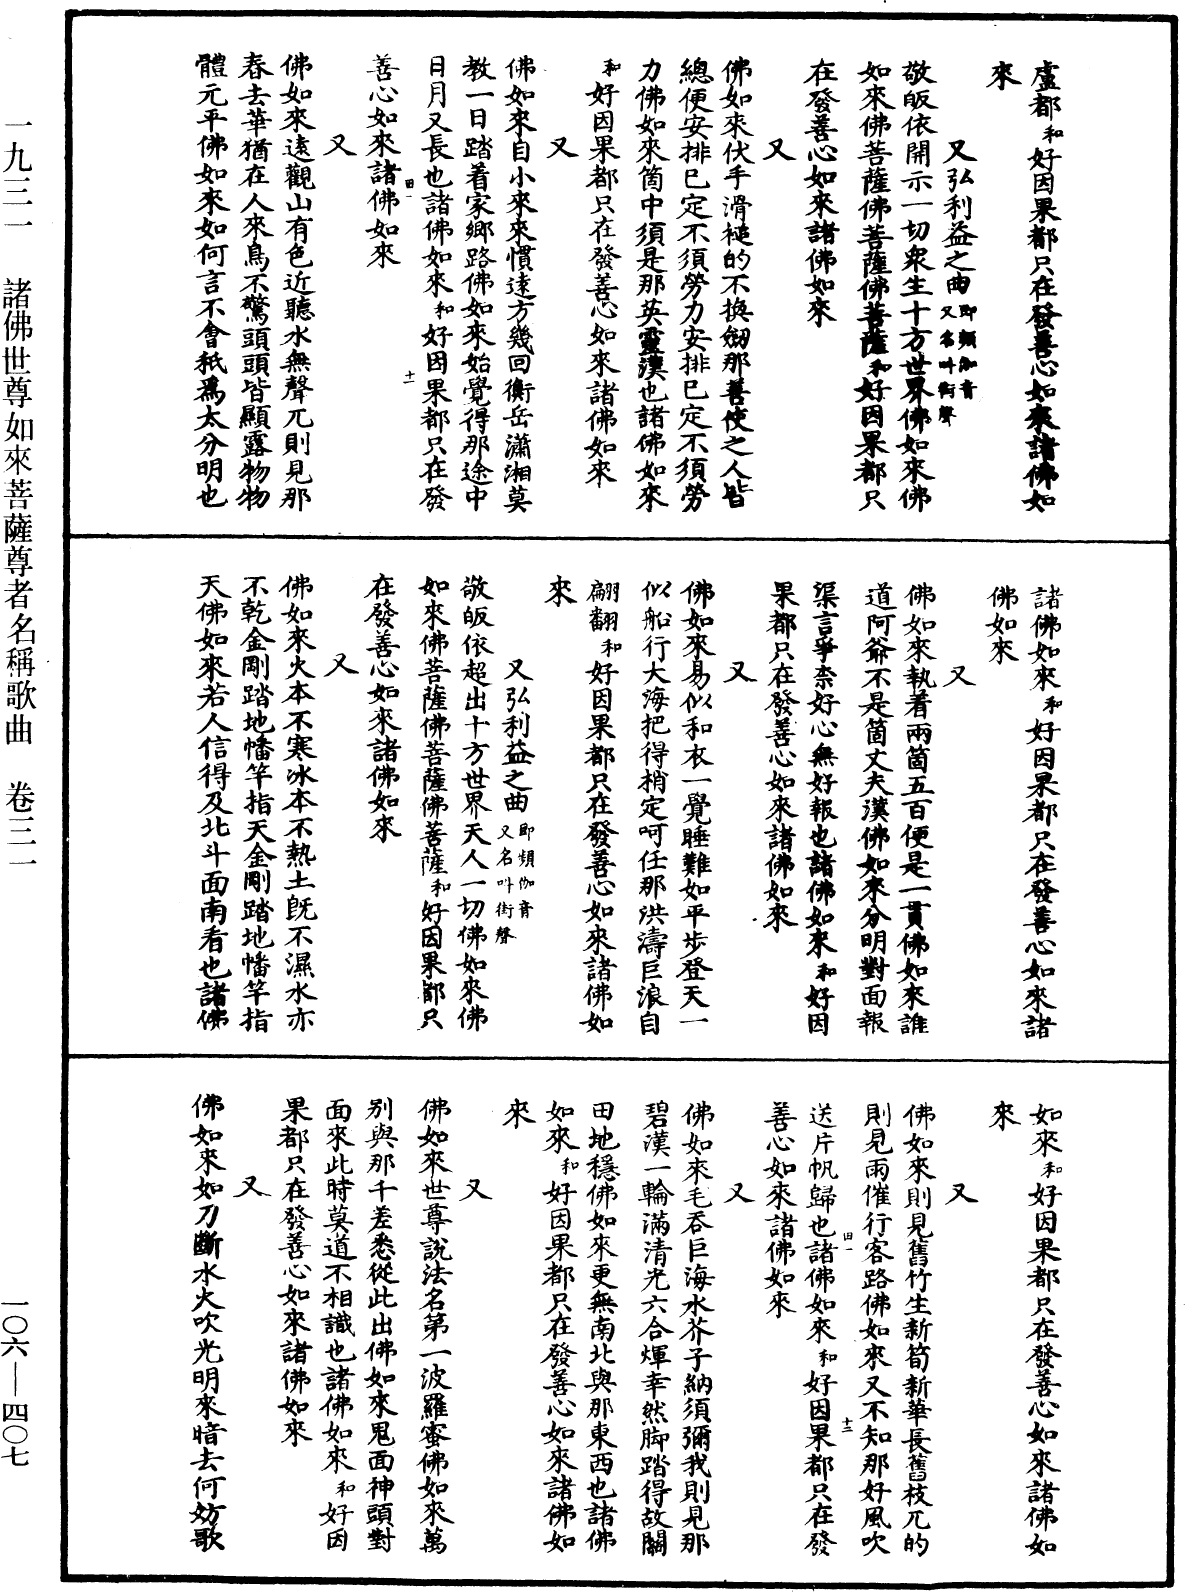 盧都和好因果都只在發善心如來諸佛如
來
又弘利益之曲即頻伽音又名叫街聲
敬皈依開示一切衆生十方世界佛如來佛
如來佛菩薩佛菩薩佛菩薩和好因果都只
在發善心如來諸佛如來
又
佛如來伏手滑槌的不換劒那善使之人皆
總便安排已定不須勞力安排已定不須勞
力佛如來箇中須是那英靈漢也諸佛如來
和好因果都只在發善心如來諸佛如來
又
佛如來自小來來慣遠方幾回衡岳瀟湘莫
教一日踏着家鄉路佛如來始覺得那途中
日月又長也諸佛如來和好因果都只在發
善心如來諸佛如來
又
佛如來遠觀山有色近聽水無聲兀則見那
春去華猶在人來鳥不驚頭頭皆顯露物物
體元平佛如來如何言不會秖爲太分明也
諸佛如來和好因果都只在發善心如來諸
佛如來
又
佛如來執着兩箇五百便是一貫佛如來誰
道阿爺不是箇丈夫漢佛如來分明對面報
渠言爭柰好心無好報也諸佛如來和好因
果都只在發善心如來諸佛如來
又
佛如來易似和衣一覺睡難如平步登天一
似船行大海把得梢定呵任那洪濤巨浪自
翩翻和好因果都只在發善心如來諸佛如
來
又弘利益之曲即頻伽音又名叫街聲
敬皈依超出十方世界天人一切佛如來佛
如來佛菩薩佛菩薩佛菩薩和好因果都只
在發善心如來諸佛如來
又
佛如來火本不寒冰本不熱土旣不濕水亦
不乾金剛踏地幡竿指天金剛踏地幡竿指
天佛如來若人信得及北斗面南看也諸佛
如來和好因果都只在發善心如來諸佛如
來
又
佛如來則見舊竹生新筍新華長舊枝兀的
則見雨催行客路佛如來又不知那好風吹
送片帆歸也諸佛如來和好因果都只在發
善心如來諸佛如來
又
佛如來毛吞巨海水芥子納須彌我則見那
碧漢一輪滿清光六合煇幸然脚踏得故關
田地穩佛如來更無南北與那東西也諸佛
如來和好因果都只在發善心如來諸佛如
來
又
佛如來世尊說法名第一波羅蜜佛如來萬
別與那千差悉從此出佛如來鬼面神頭對
面來此時莫道不相識也諸佛如來和好因
果都只在發善心如來諸佛如來
又
佛如來如刀斷水火吹光明來暗去何妨歌
一九三一　諸佛世尊如來菩薩尊者名稱歌曲　卷三一
一〇六—四〇七